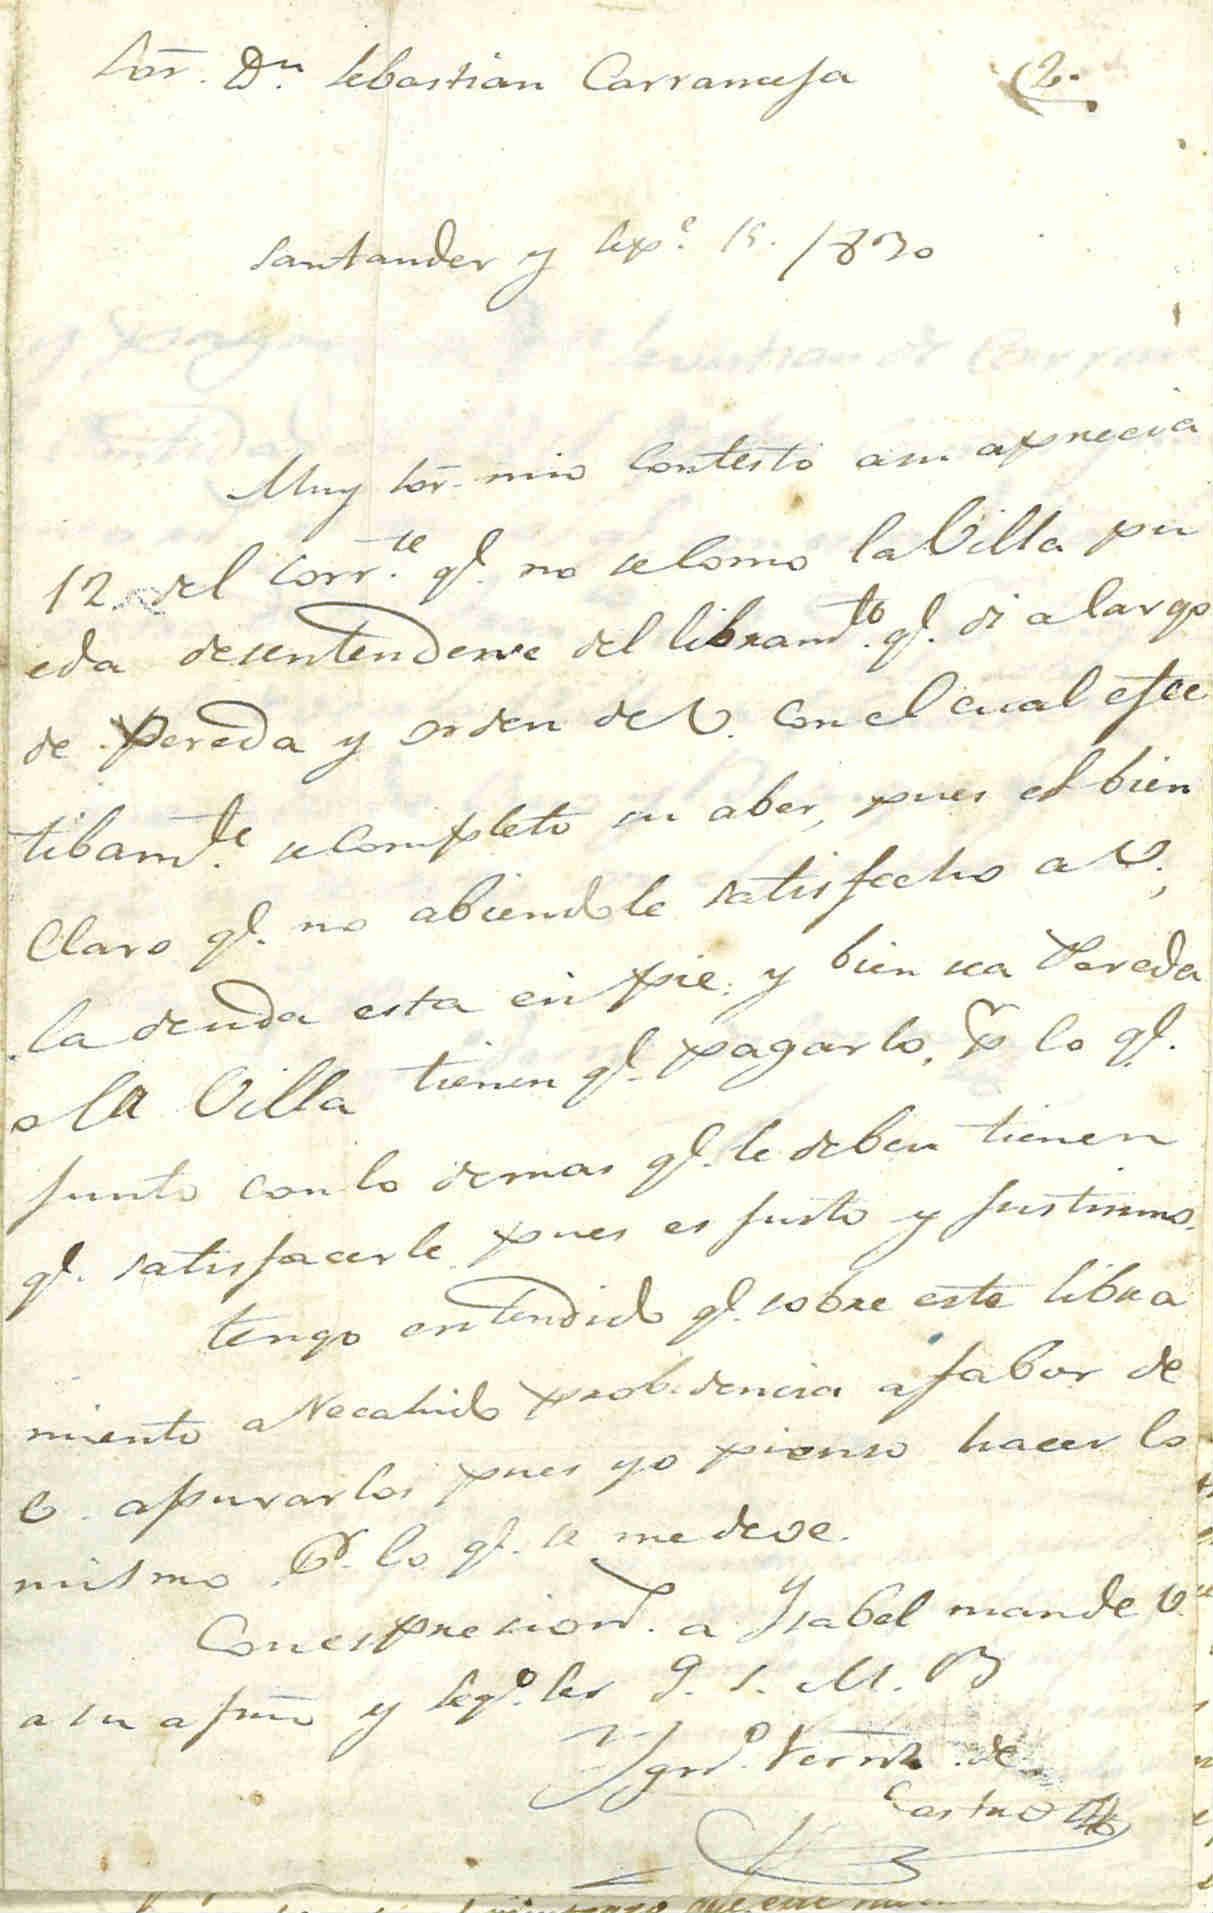 Sor. Dn. Sebastian Carranceja (2.
Santander y Sepe. 15. 1830
Muy Sor. mio Contesto a su aprecia
12 del corrte. qe. no se como la Villa pu
eda desentenderse del libramto. qe. di a largo
de Pereda y orden de V. con el cual efec
tibamte. se completó su aber, pues es bien
Claro qe. no abiendole satisfecho a V.,
la deuda esta en pie, y bien sea Pereda
o la Villa tienen qe. pagarlo, Pr lo qe.
junto con lo demas qe. le deben tienen
qe. satisfacerle pues es justo y justisimo.
tengo entendido qe. sobre este libra
miento a Recahido probidencia a fabor de
V. apurarlos pues yo pienso hacer lo
mismo Pr. lo qe. se me deve.
Con espresiones. a Ysabel mande V.
a su afmo y Sego. Ser Q. S. M. B
Ygno. Fernz. de
Castro